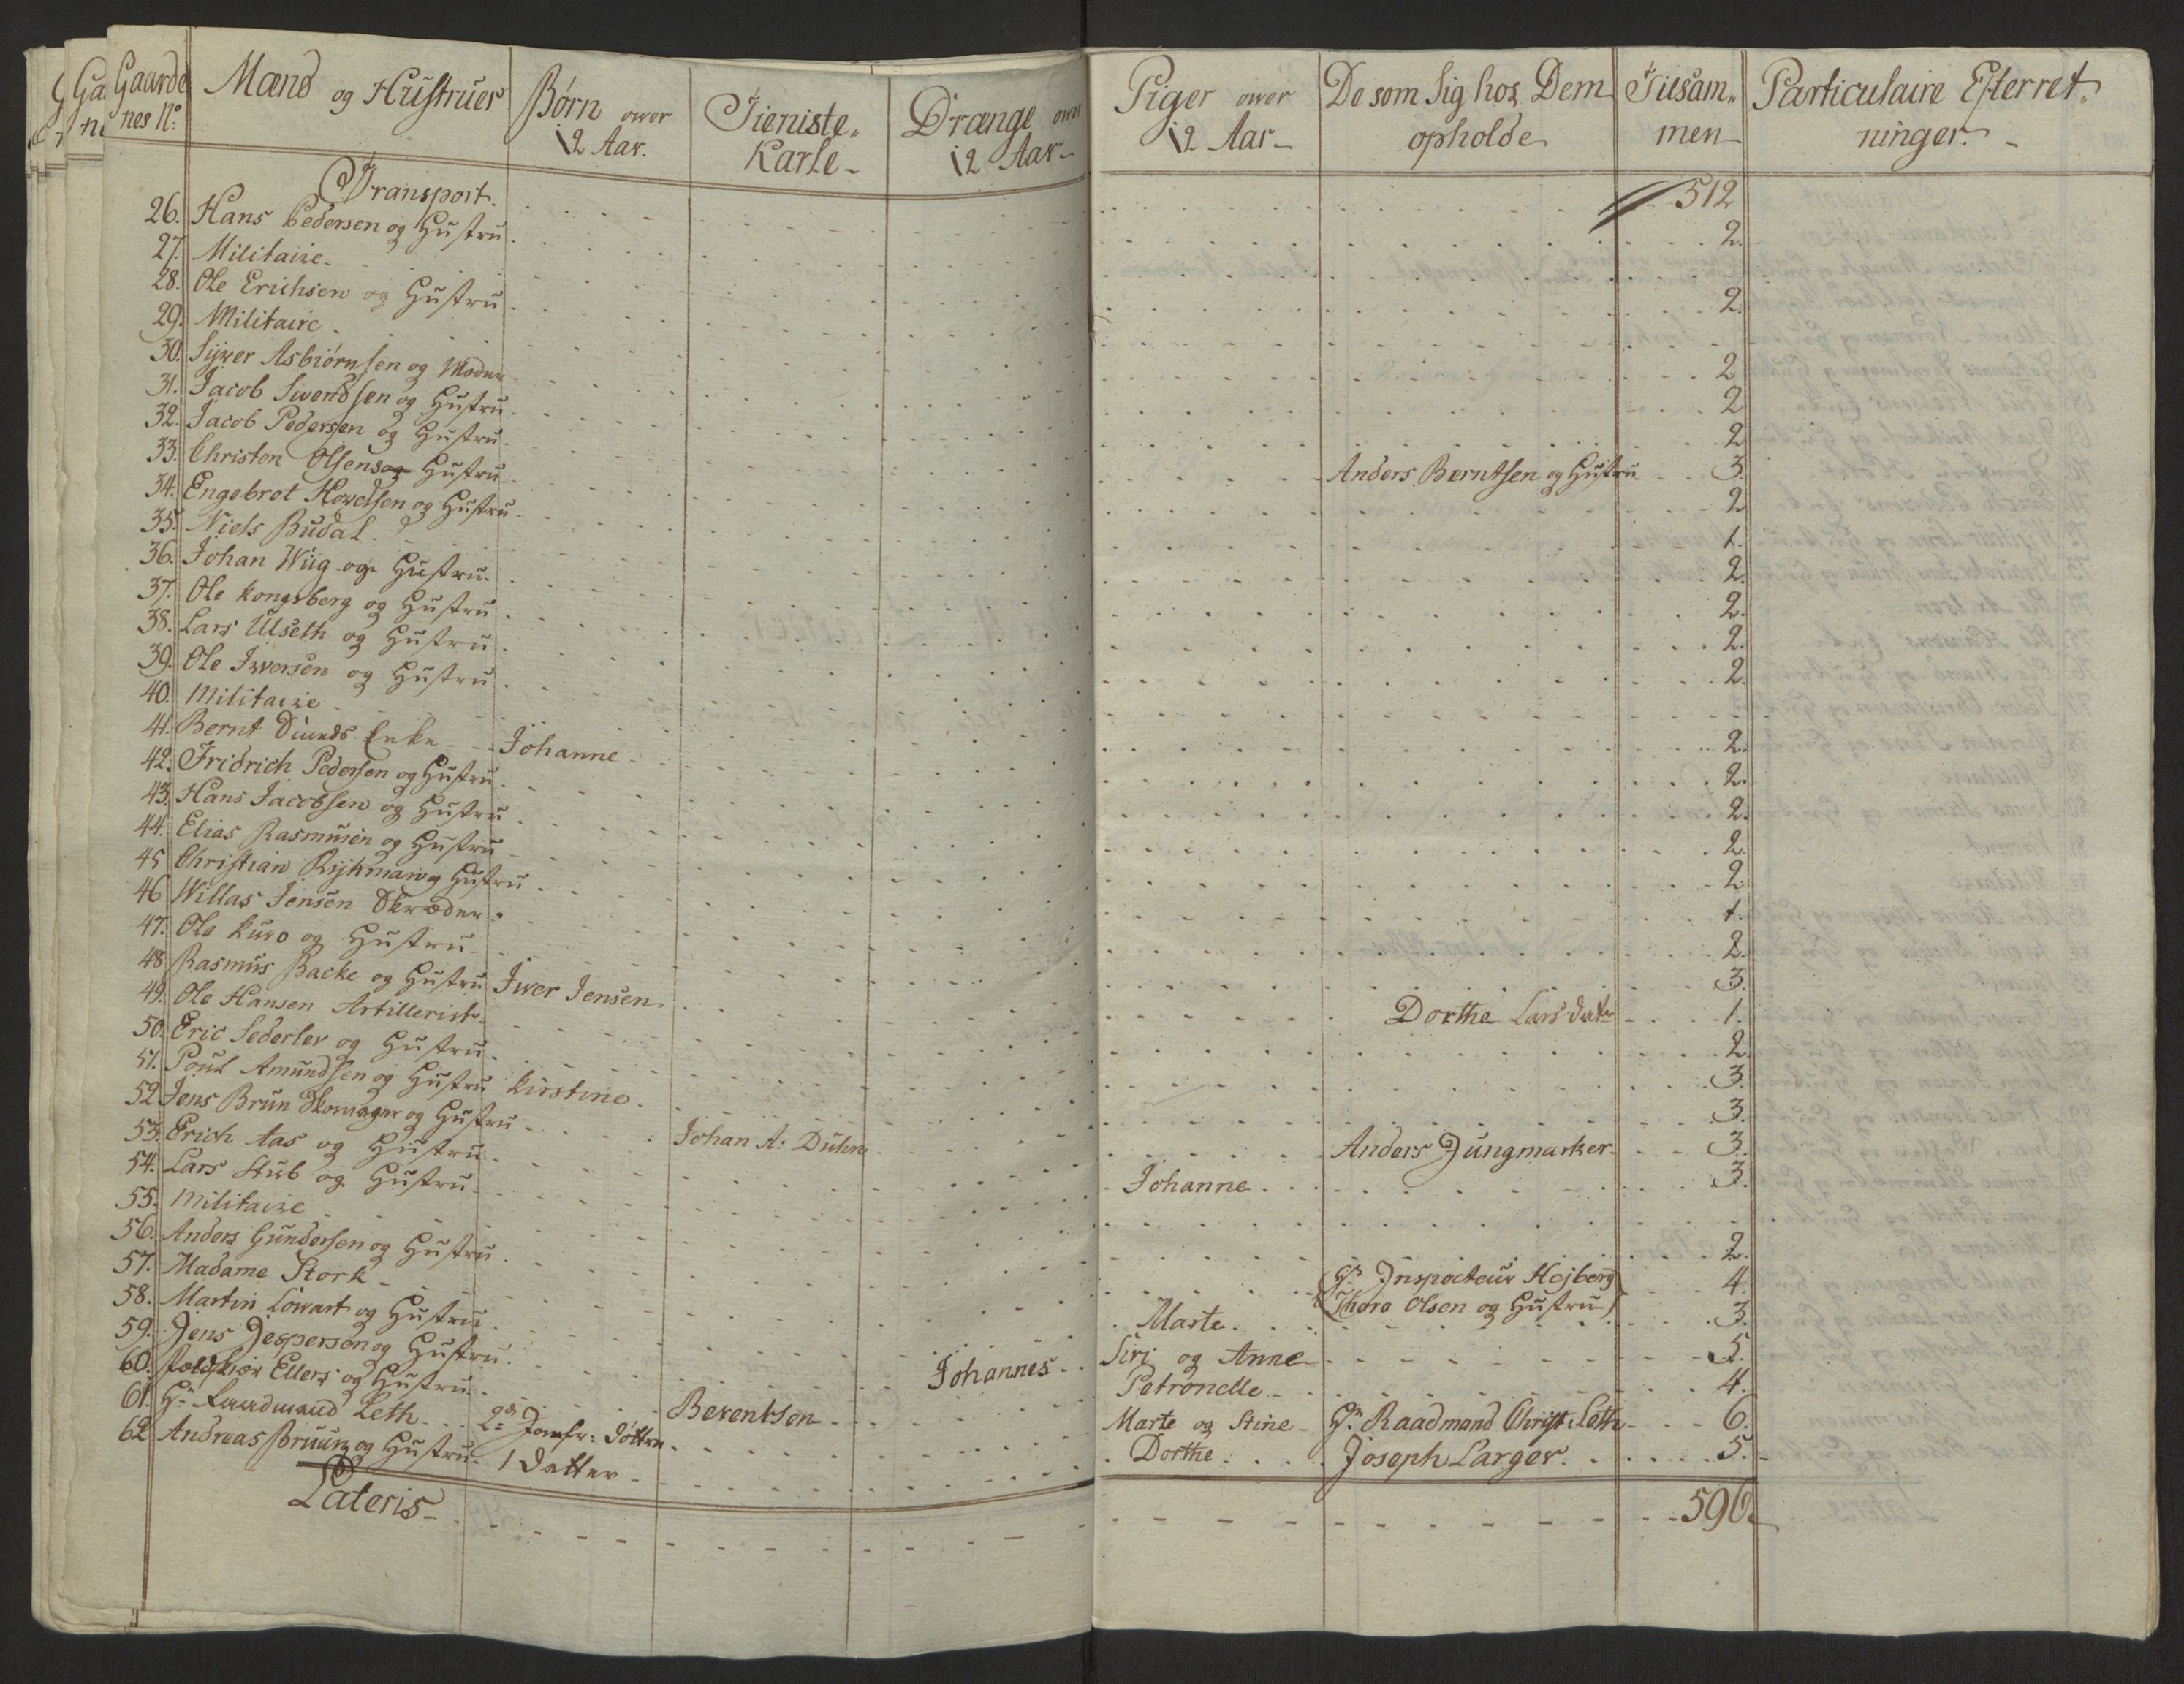 Gaardenes No: Mænd og Hustruer Børn over 12 Aar. Tieniste Karle Drænge over 12 Aar Piger over 12 Aar De som Sig hos Dem opholde Tilsammen Particulaire Efterretninger.
Transport. 512
26. Hans Pedersen og Hustru 2.
27. Militaire
28. Ole Erichsen og Hustru 2.
29. Militaire
30. Sijver Asbiørnsen og Moder 2
31. Jacob Svendsen og Hustru 2
32. Jacob Pedersen og Hustru 2
33. Christen Olsens Hustru Anders Berntsen og Hustru 3.
34. Engebret Hovelsen og Hustru 2
35. Niels Budal 1.
36. Johan Wiig og Hustru 2.
37. Ole Kongsberg og Hustru 2.
38. Lars Ulseth og Hustru 2.
39. Ole Iversen og Hustru 2.
40. Militaire
41. Bernt Enke Johanne 2.
42. Fridrich Pedersen og Hustru 2.
43. Hans Jacobsen og Hustru 2.
44. Elias Rasmusen og Hustru 2.
45 Christian Rijkman og Hustru 2
46 Willas Jensen Skræder 1.
47. Ole Kuro og Hustru 2.
48 Rasmus Backe og Hustru Iver Jensen 3.
49. Ole Hansen Artillerist Dorthe Larsdatter 1.
50. Eric Sederlev og Hustru 2.
51. Poul Amundsen og Hustru Kirstine 3.
52 Jens Brun Skomager og Hustru Johan A: Duhm 3.
53. Erich Aas og Hustru Anders Jungmarker 3.
54. Lars Stub og Hustru Johanne 3.
55. Militaire
56. Anders Gundersen og Hustru 2.
57. Madame Stork Hr Inspecteur Hejberg Thore Olsen og Hustru 4.
58. Martin Lowart og Hustru Marte 3.
59. Jens Jespersen og Hustru Johannes Siri og Anne 5.
60. Feldskiær Ellers og Hustru Petronelle 4.
61. Hr Raadmand Leth 2de Jomfr: Døttre Berentsen Marte og Stine Hr Raadmand Christ: Leth 6.
62 Andreas Bruun og Hustru 1 Datter Dorthe Joseph Larger 5.
Lateris 596.